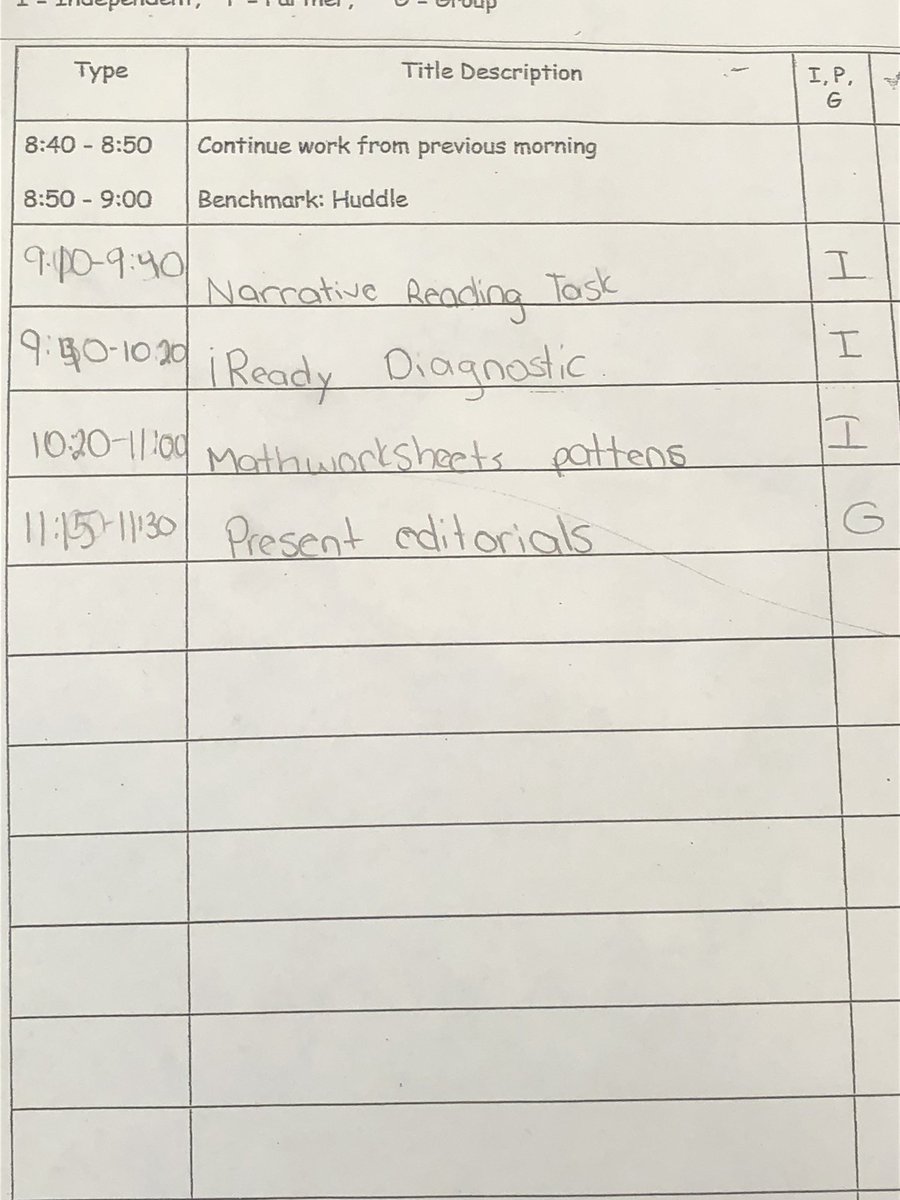 I = Independent, P = Partner, G = Group
Type Title Description I, P, G
8:40 - 8:50 Continue work from previous morning
8:50 - 9:00 Benchmark: Huddle
9:00-9:40 Narrative Reading Task I
9:40-10:20 iReady Diagnostic. I
10:20-11:00 Mathworksheets pattens I
11:15-11:30 Present editorials G